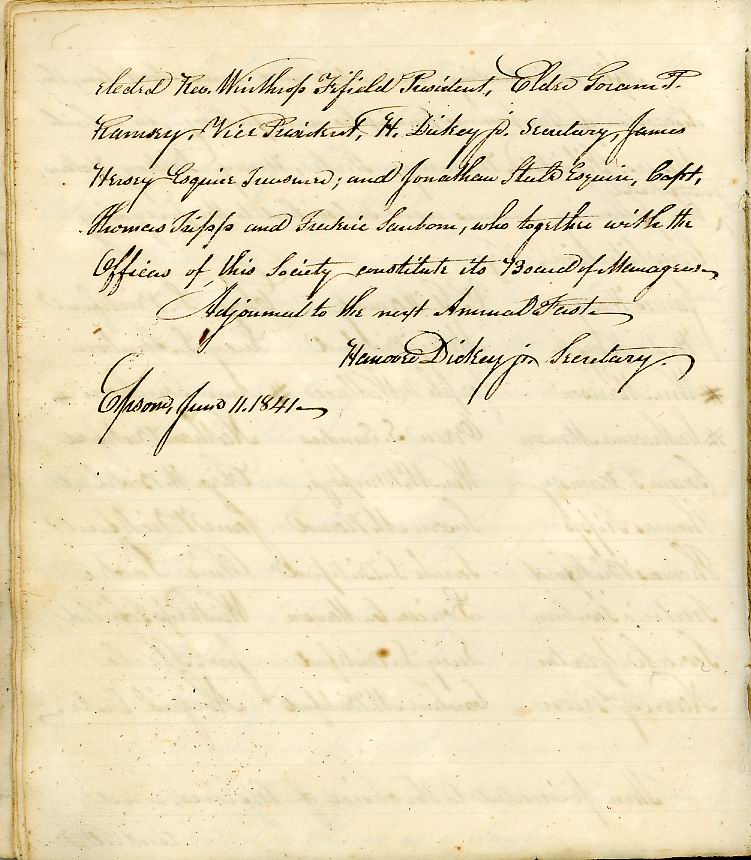 elected Rev. Winthrop Fifield President, Elder Goram P.
Ramsey, Vice President, H. Dickey jr. Secretary, James
Hersey Esquire Treasurer; and Jonathan Steele Esquire, Capt,
Thomas Tripp and Frederic Sanborn, who together with the
Officers of this Society constitute its Board of Managers
Adjourned to the next Annual Fast
Hanover Dickey jr Secretary.
Epsom, June 11. 1841